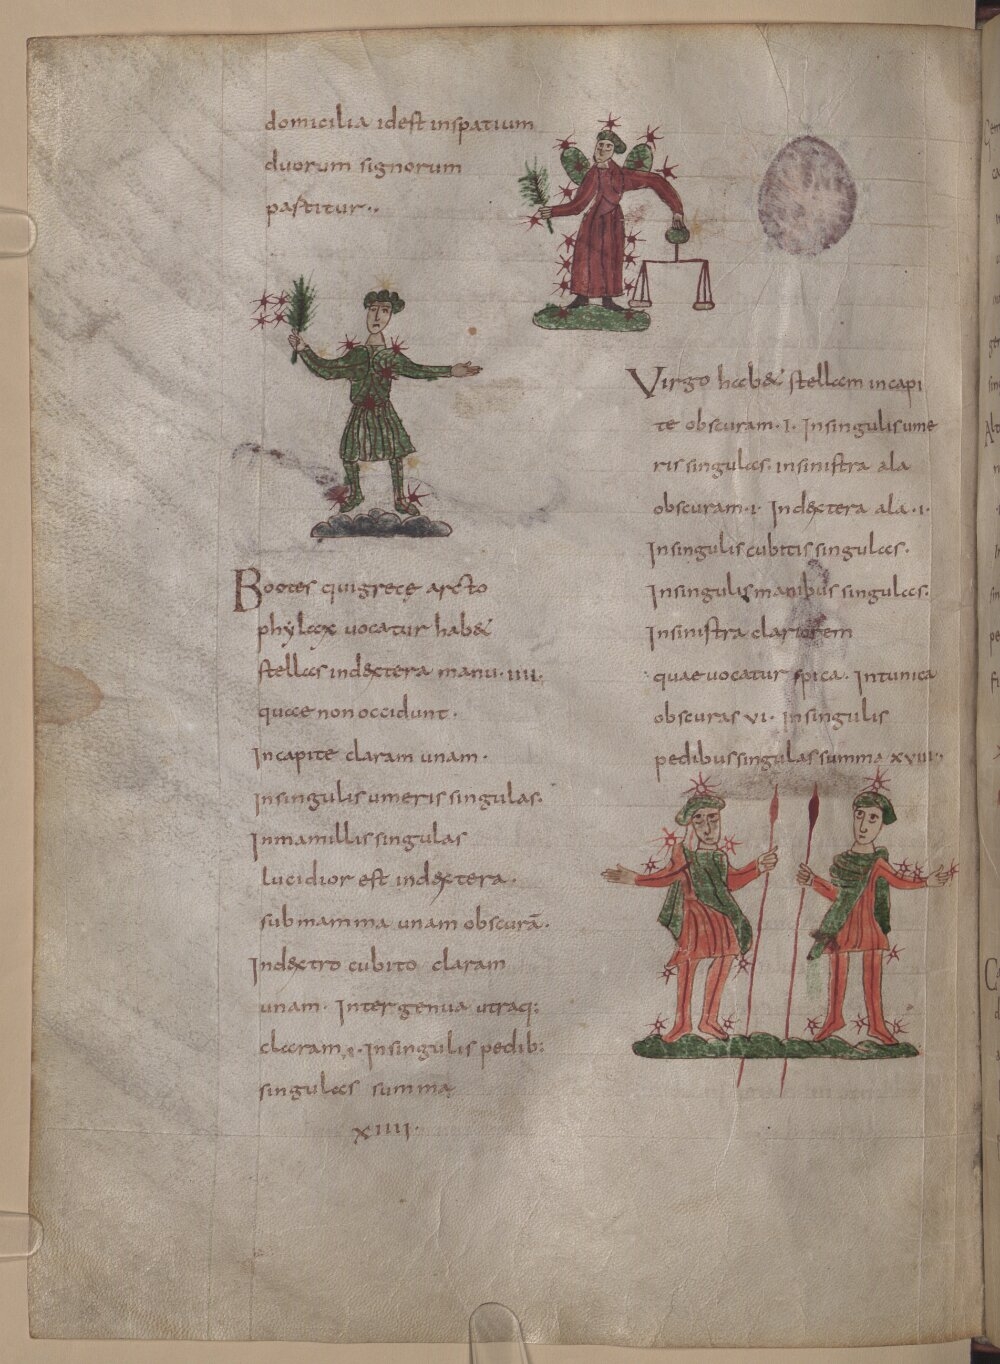 domicilia id est inspatium
duorum signorum
partitur..
Bootes qui grece arcto
phylax vocatur hab&
stellas indextera manu·IIII·
quae non occidunt·
Incapite claram unam·
Insingulis umeris singulas·
Inmamillis singulas
lucidior est indextera·
submamma unam obscurā·
Indextro cubito claram
unam· Inter genua utraq:
claram·I·Insingulis pedib:
singulas summa
XIIII·
Virgo hab& stellam incapi
te obscuram·I·Insingulis ume
ris singulas· insinistra ala
obscuram·I· Indextera ala·I·
Insingulis cubitis singulas·
Insingulis manibus singulas·
Insinistra clariorem
quae vocatur spica· Intunica
obscuras VI· Insingulis
pedibus singulas summa XVIII·